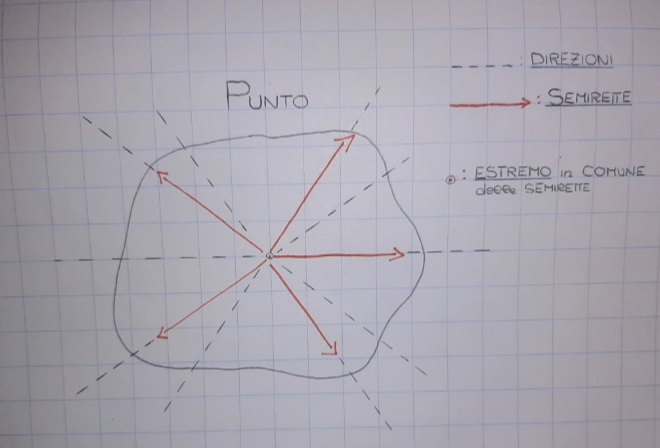 PUNTO
: DIREZIONI
: SEMIRETTE
: ESTREMO in COMUNE
delle SEMIRETTE